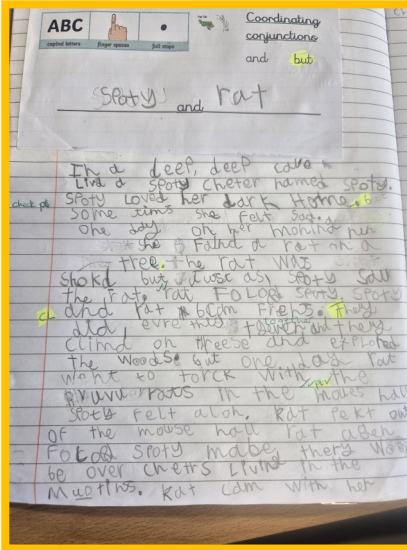 ABC
capital letters finger spaces full stops
Coordinating
conjunctions
and but
Spoty and rat
In a deep, deep cave
Livd a Spoty cheter named Spoty.
Spoty Loved her dark Home
Some tims she felt Sad.
One day on her moning
she Faind a rat in a
tree. the rat Was
Shokd but Just as Spoty Saw
the rat, rat FoLod Spoty. Spoty
and rat becam Frens. They
did evre thing and they
climd on treese and explored
the woods. but one day rat
went to torck with the
rats in the mows hall
Spoty Felt aloh. Rat Pekt out
of the mouse hall rat agen
Spoty mabe thery Wod
be over cheters Living in the
Muotins. Rat cam with her